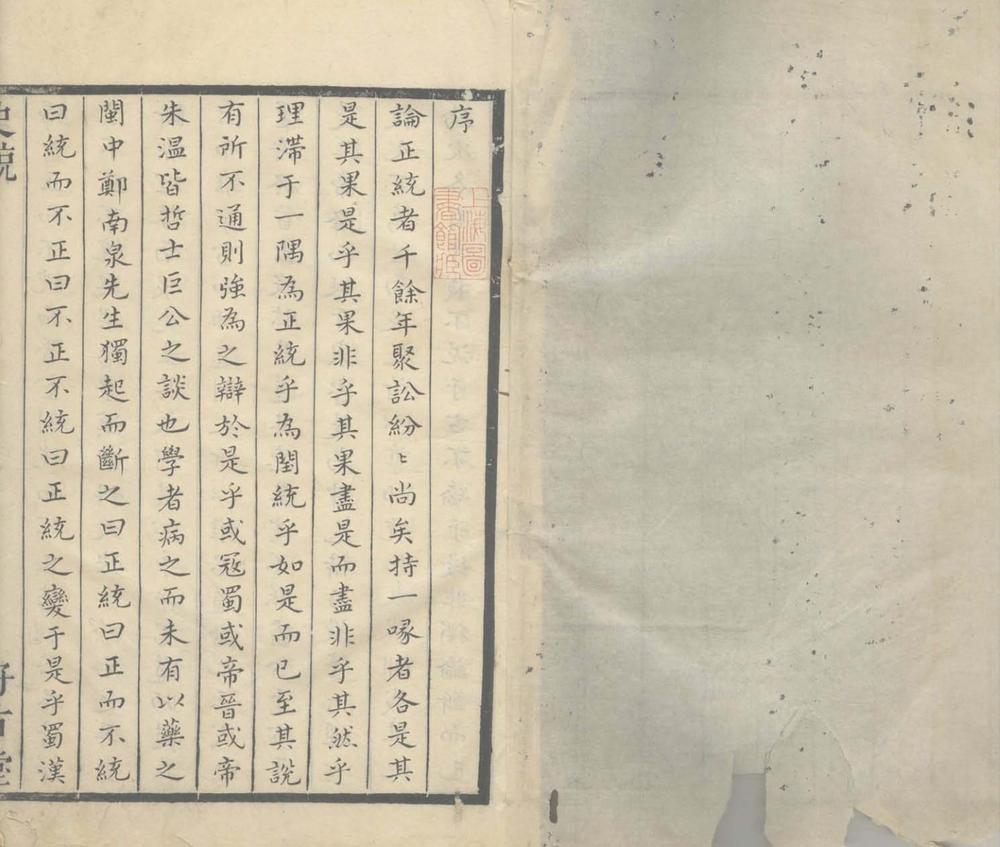 序
論正統者千餘年聚訟紛〻尚矣持一喙者各是其
是其果是乎其果非乎其果盡是而盡非乎其然乎
理滯于一隅為正統乎為閏統乎如是而已至其說
有所不通則強為之辯於是乎或冠蜀或帝晉或帝
朱溫皆哲士巨公之談也學者病之而未有以藥之
閩中鄭南泉先生獨起而斷之曰正統曰正而不統
曰統而不正曰不正不統曰正統之變于是乎蜀漢
上海圖
書館藏